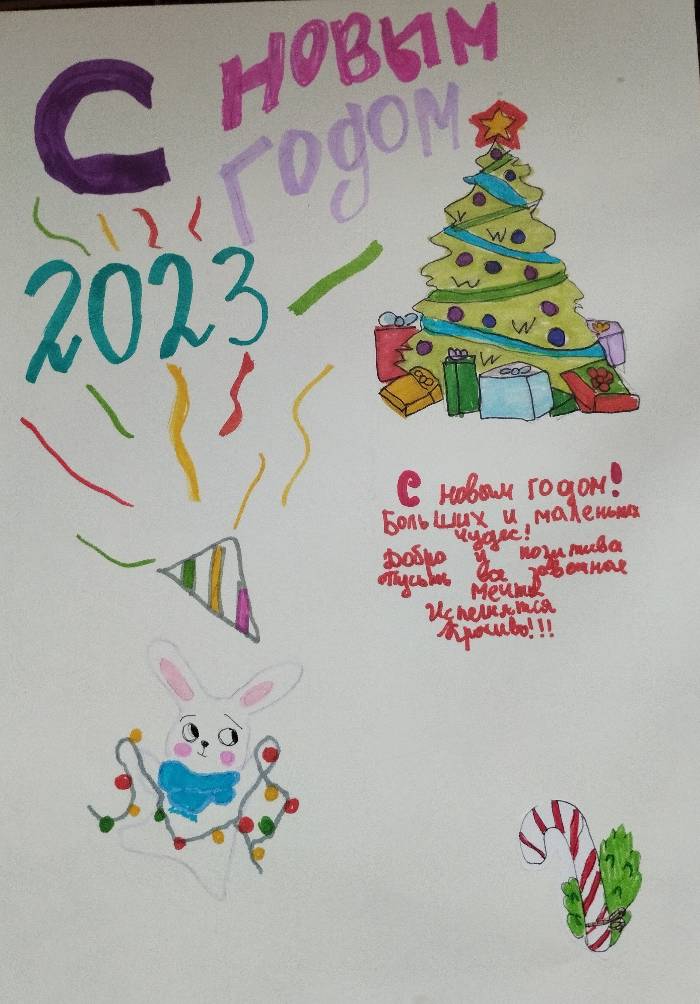 С НОВЫМ
ГОДОМ
2023
С новым годом!
Больших и маленьких
чудес!
Добра и позитива
Пусть все заветные
мечты
Исполнятся
Красиво!!!